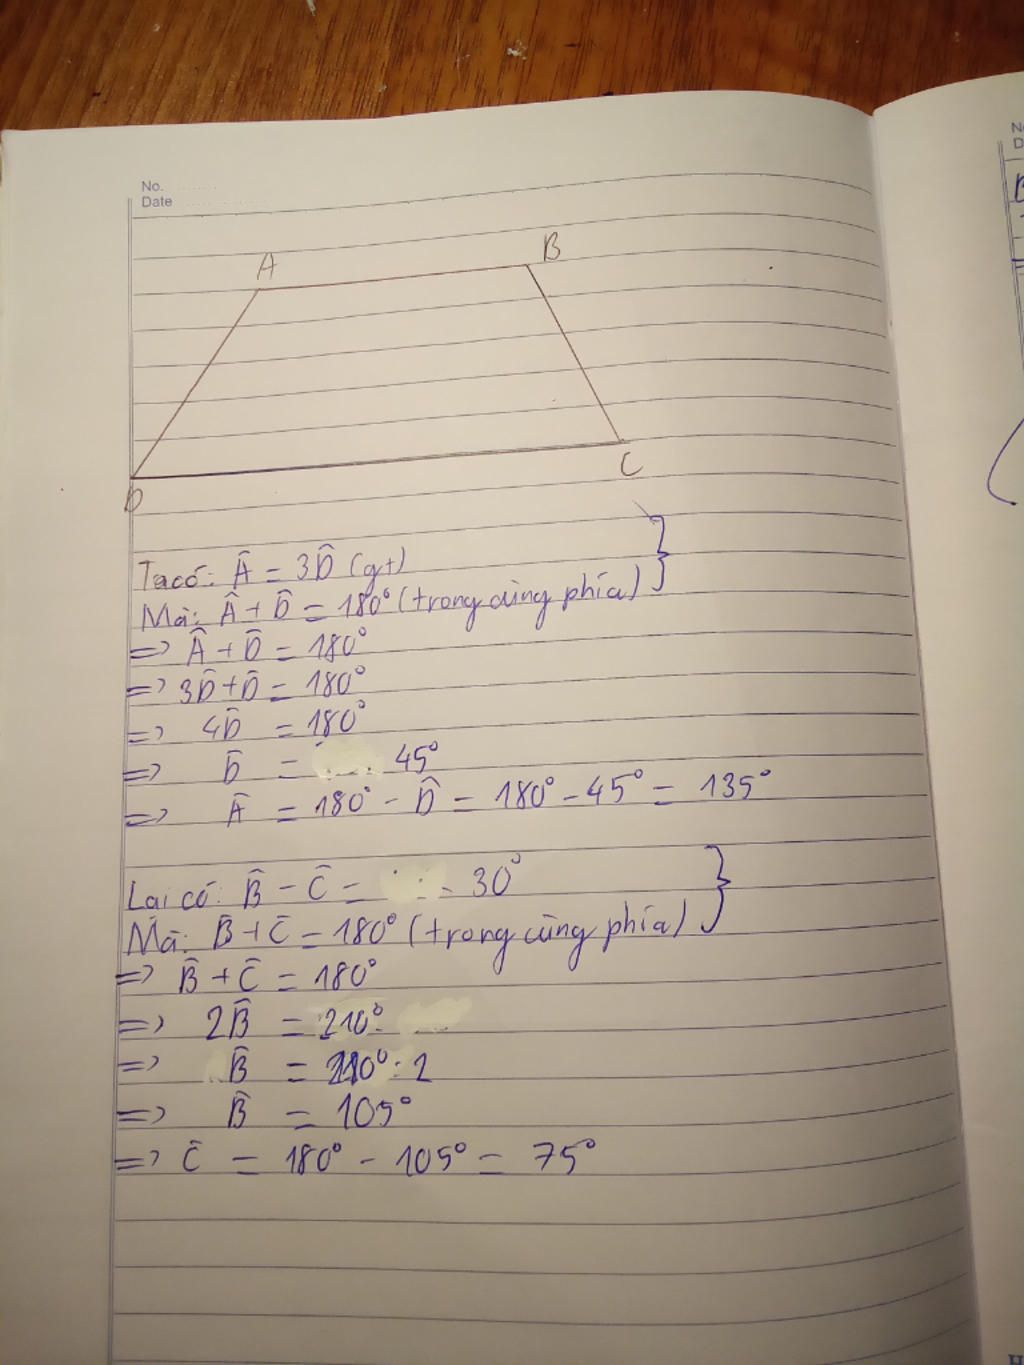 No.
Date
A
B
D
C
Ta có: Â = 3D̂ (gt)
Mà: Â + D̂ = 180° (trong cùng phía)
=> Â + D̂ = 180°
=> 3D̂ + D̂ = 180°
=> 4D̂ = 180°
=> D̂ = 45°
=> Â = 180° - D̂ = 180° - 45° = 135°
Lại có: B̂ - Ĉ = = 30°
Mà: B̂ + Ĉ = 180° (trong cùng phía)
=> B̂ + Ĉ = 180°
=> 2B̂ = 210°
=> B̂ = 210° : 2
=> B̂ = 105°
=> Ĉ = 180° - 105° = 75°